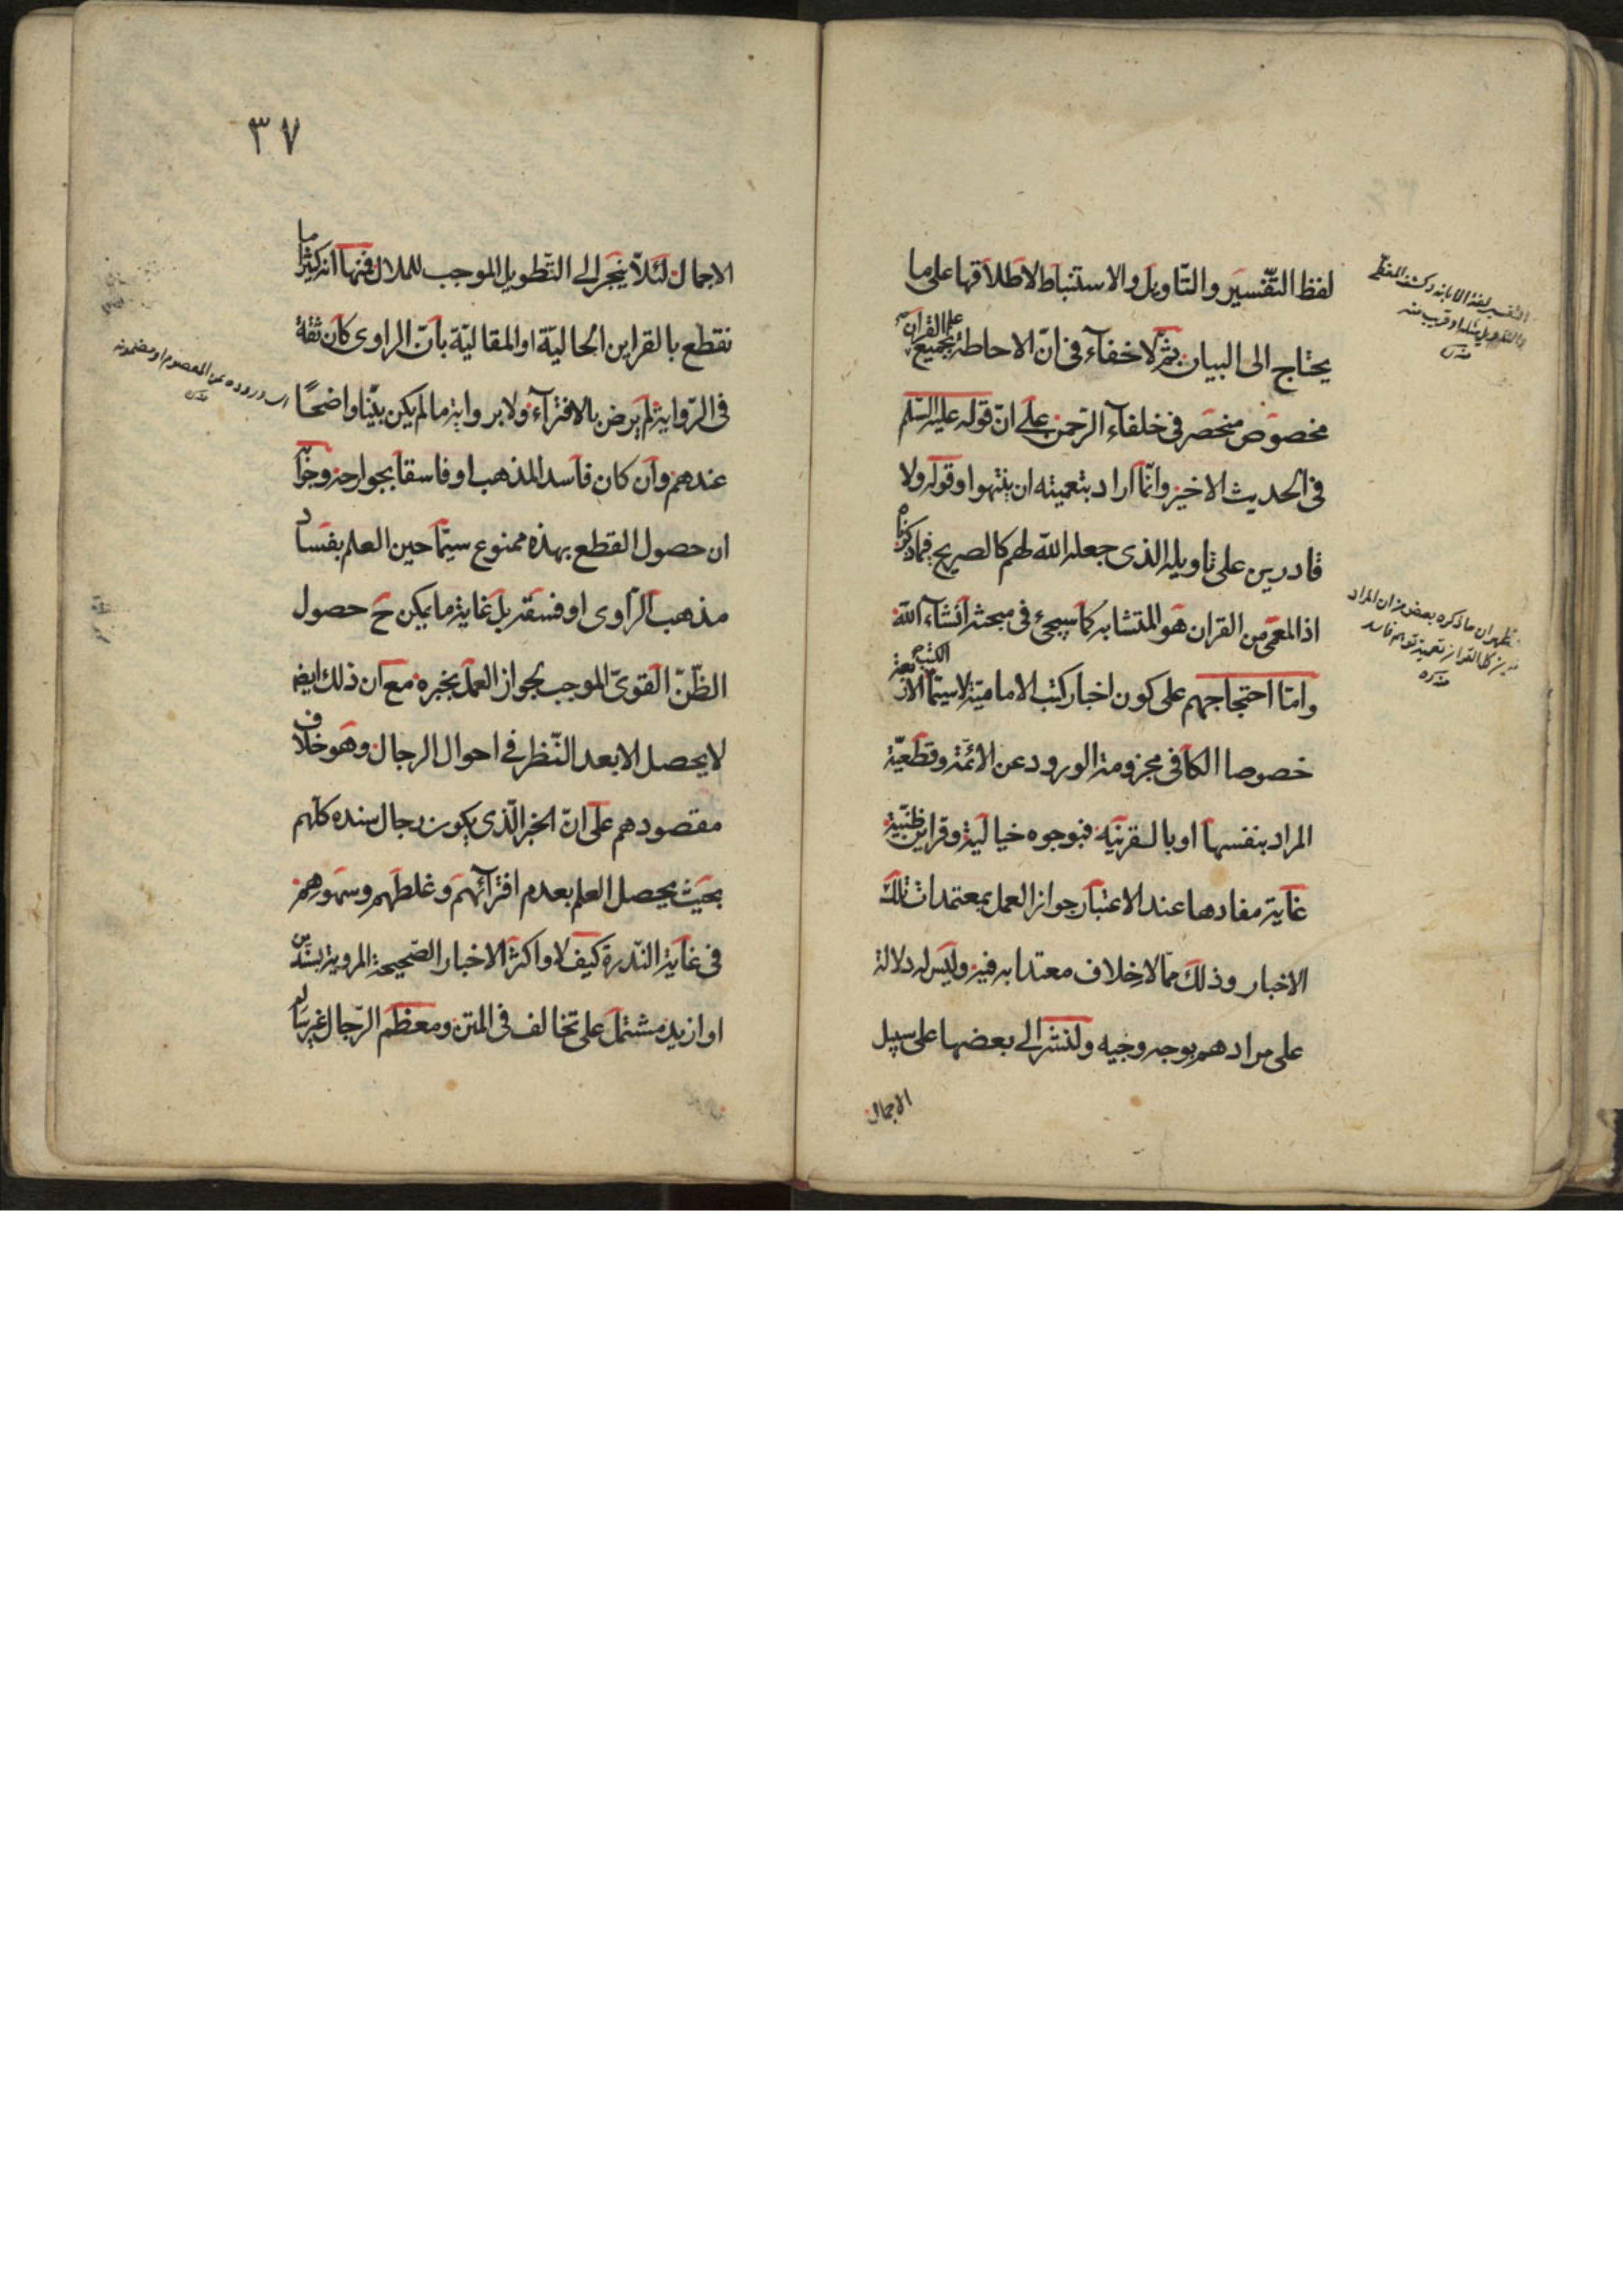 لفظ التّفسير والتّاويل والاستنباط لاطلاقها على ما
يحتاج الى البيان ثمّ لا خفآء فى انّ الاحاطة بجميع علم القرآن
مخصوص منحصر فى خلفآء الرّحمن على انّ قوله عليه السّلم
فى الحديث الاخير وانّما اراد بتعميته ان ينتهوا وقوله ولا
قادرين على تاويله الذى جعله اللّه لهم كالصريح فيما ذكرناه
اذ المعمى من القران هو المتشابه كما سيجئ فى مبحثه انشآء اللّه
وامّا احتجاجهم على كون اخبار كتب الاماميّة لاسيّما الكتب الاربعة
خصوصا الكافى مجزومة الورود عن الائمّة وقطعيّة
المراد بنفسها او بالقرنيه فبوجوه خيالية وقراين ظنّيّة
غاية مفادها عند الاعتبار جواز العمل بمعتمدات تلك
الاخبار وذلك ممّا لا خلاف معتدا به فيه وليس له دلالة
على مرادهم بوجه وجيه ولنشر الى بعضها على سبيل
الاجمال
التفسير لغة الابانة وكشف المغطّى
والتاويل مثله او قريب منه
منه
ظهر ان ما ذكره بعض من ان المراد
كل القران تعميته توهم فاسد
منه ره
٣٧
الاجمال لئلاّ ينجر الى التّطويل الموجب للملال فمنها انه كثيرا ما
نقطع بالقراين الحاليّة او المقاليّة بانّ الراوى كان ثقة
فى الرّواية لم يرض بالافترآء ولا برواية ما لم يكن بيّنا واضحًا
عندهم وان كان فاسد المذهب او فاسقا بجوارحه وجوابه
ان حصول القطع بهذه ممنوع سيّما حين العلم بفساد
مذهب الرّاوى او فسقه بل غاية ما يمكن ح حصول
الظّنّ القوىّ الموجب لجواز العمل بخبره مع ان ذلك ايضا
لا يحصل الا بعد النّظر فى احوال الرجال وهو خلاف
مقصودهم على انّ الخبر الّذى يكون رجال سنده كلّهم
بحيث يحصل العلم بعدم افترآئهم وغلطهم وسهوهم
فى غاية النّدرة كيف لا واكثر الاخبار الصّحيحة المروية بسندين
او ازيد مشتمل على تخالف فى المتن ومعظم الرّجال غير سالم
اى وروده عن المعصوم او مضمونه
منه